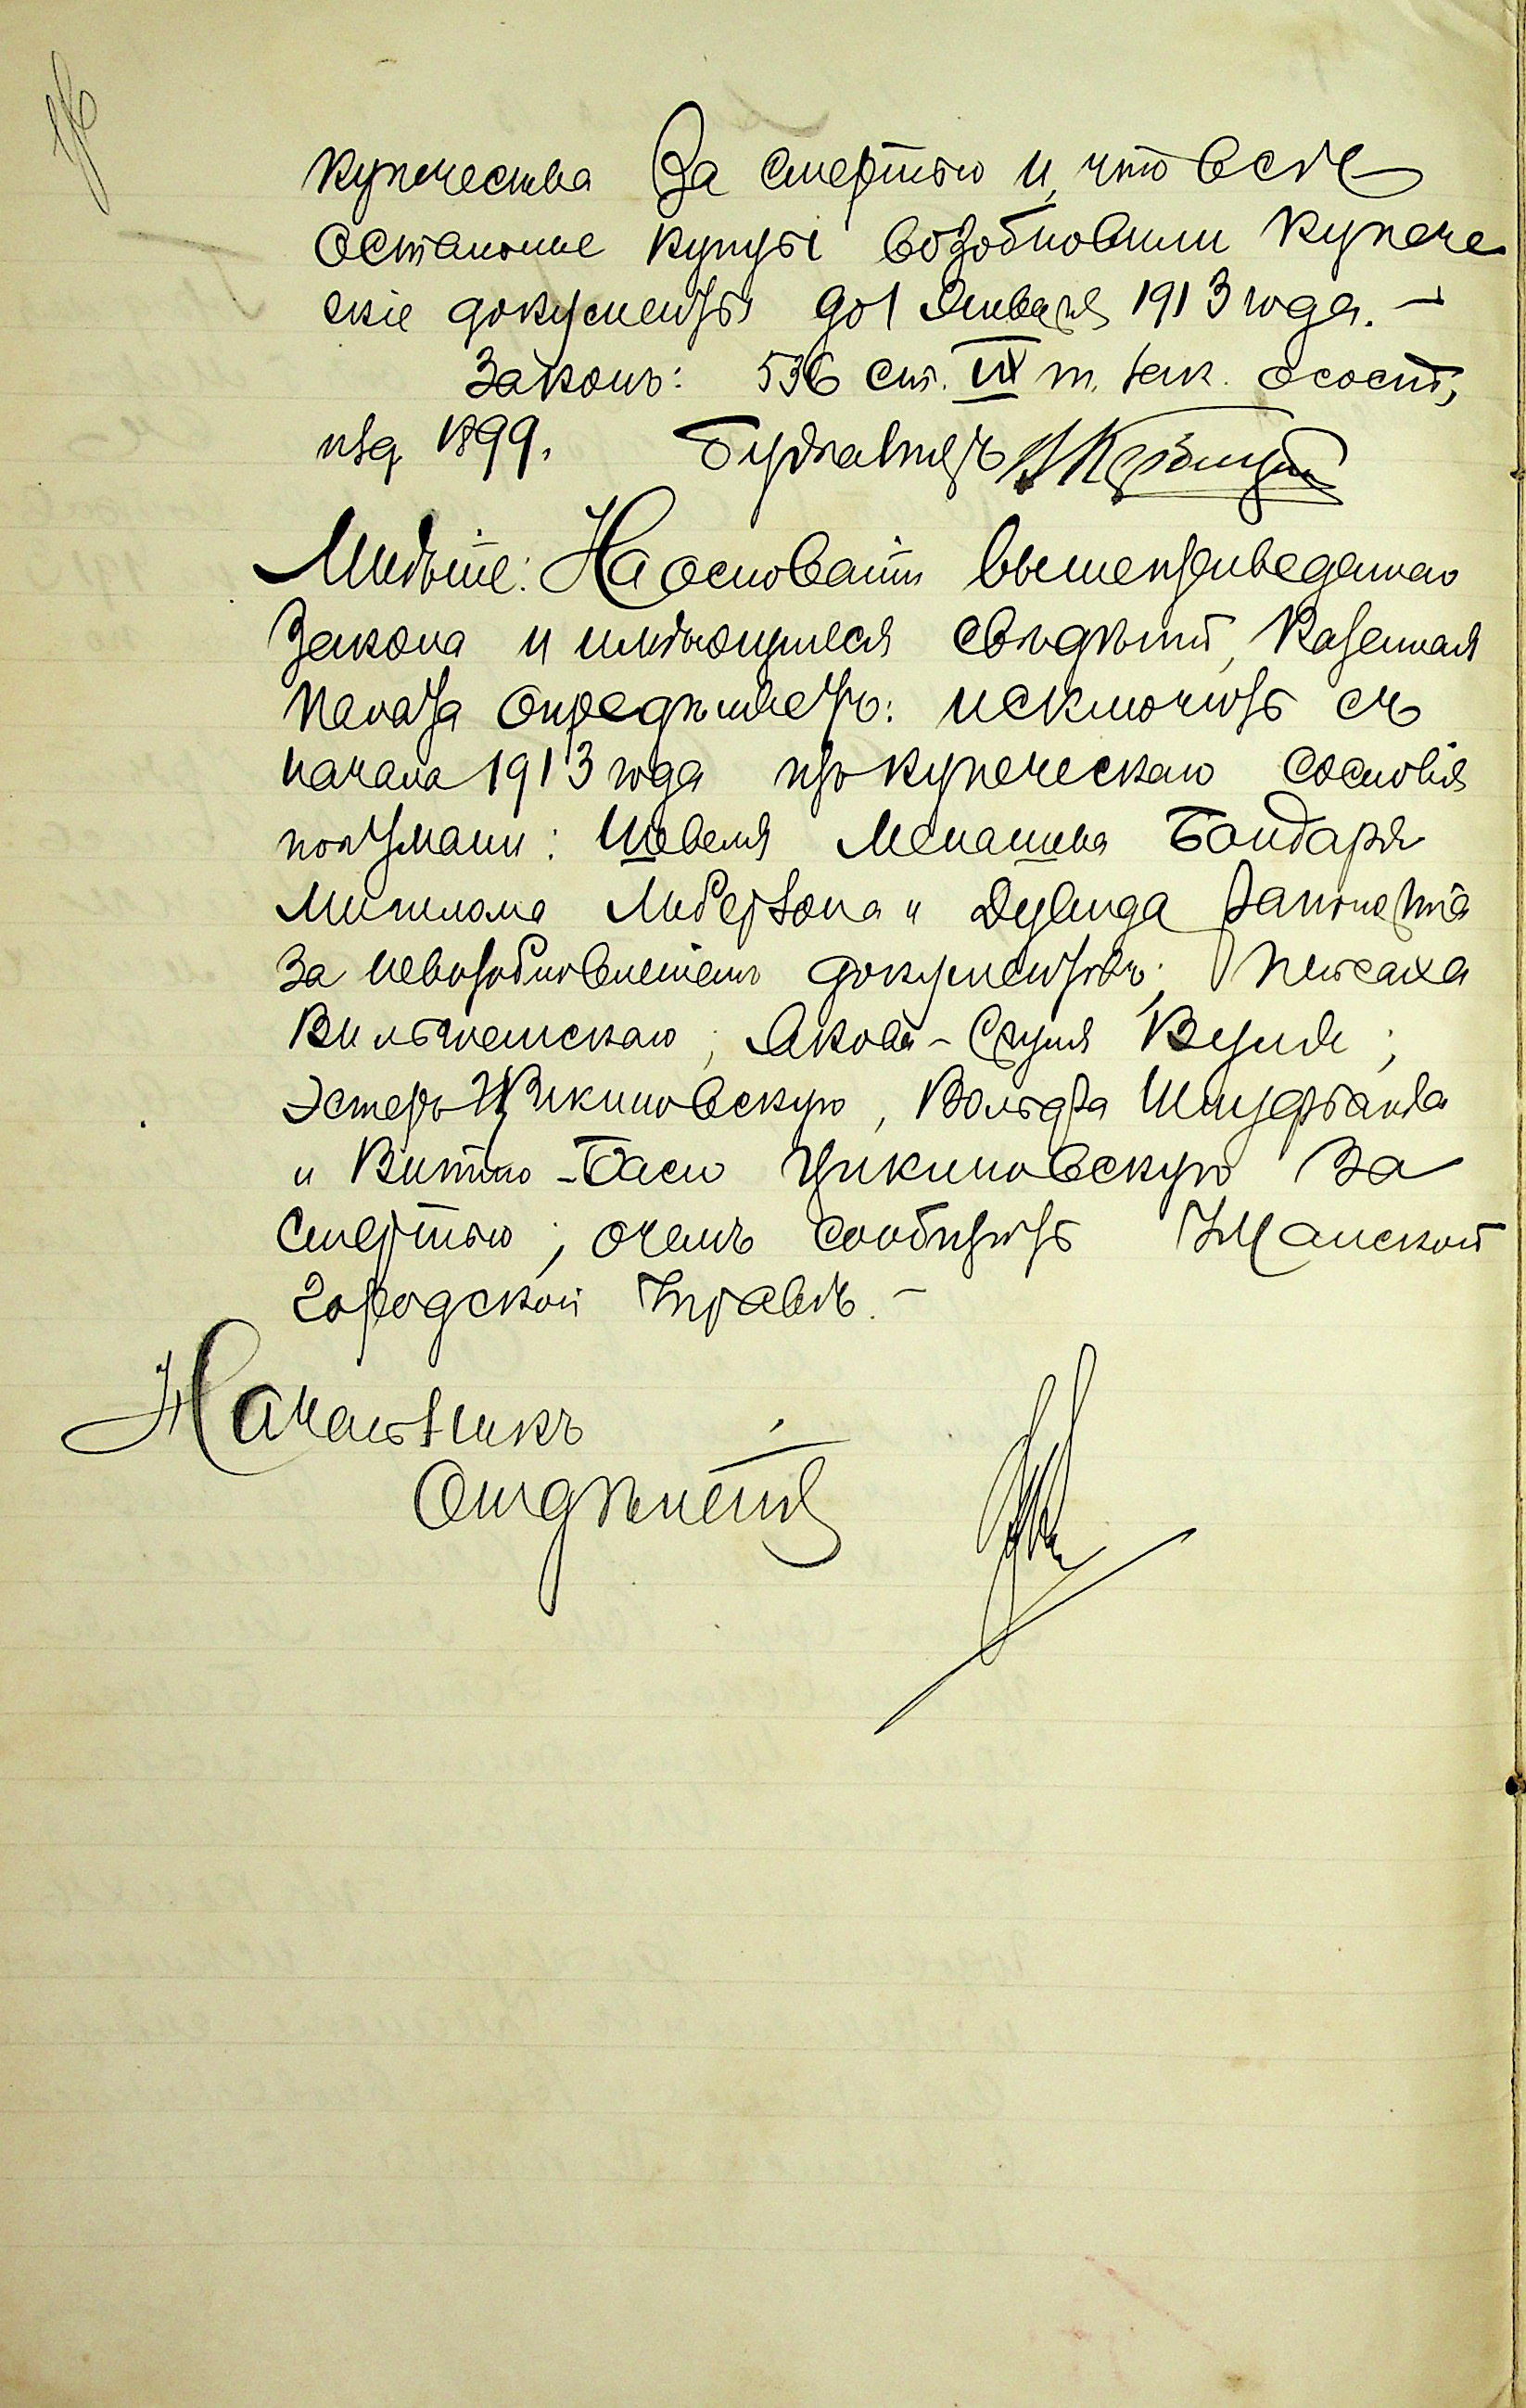 купечества за смертью и, что всѣ
остальные купцы возобновили купече
скіе документы до 1 Января 1913 года. —
Законъ: 536 ст. IX т. зак. о сост.,
изд. 1899. Бухгалтеръ
Мнѣніе: На основаніи вышеизложеннаго
закона и имѣющихся свѣдѣній, Казенная
Палата опредѣляетъ: исключить съ
начала 1913 года изъ купеческаго сословія
по г. Умани: Шевеля Менашева Бондаря
Мишлома Либерзона и Дувида Рапопорта
за невозобновленіемъ документовъ; Пейсаха
Вильшанскаго; Якова-Сруля ;
Эстеръ Цикиновскую, Вольфа
и Витлю-Басю Цикиновскую за
смертью; о чемъ сообщить Уманской
Городской Управѣ. —
Начальникъ
Отдѣленія